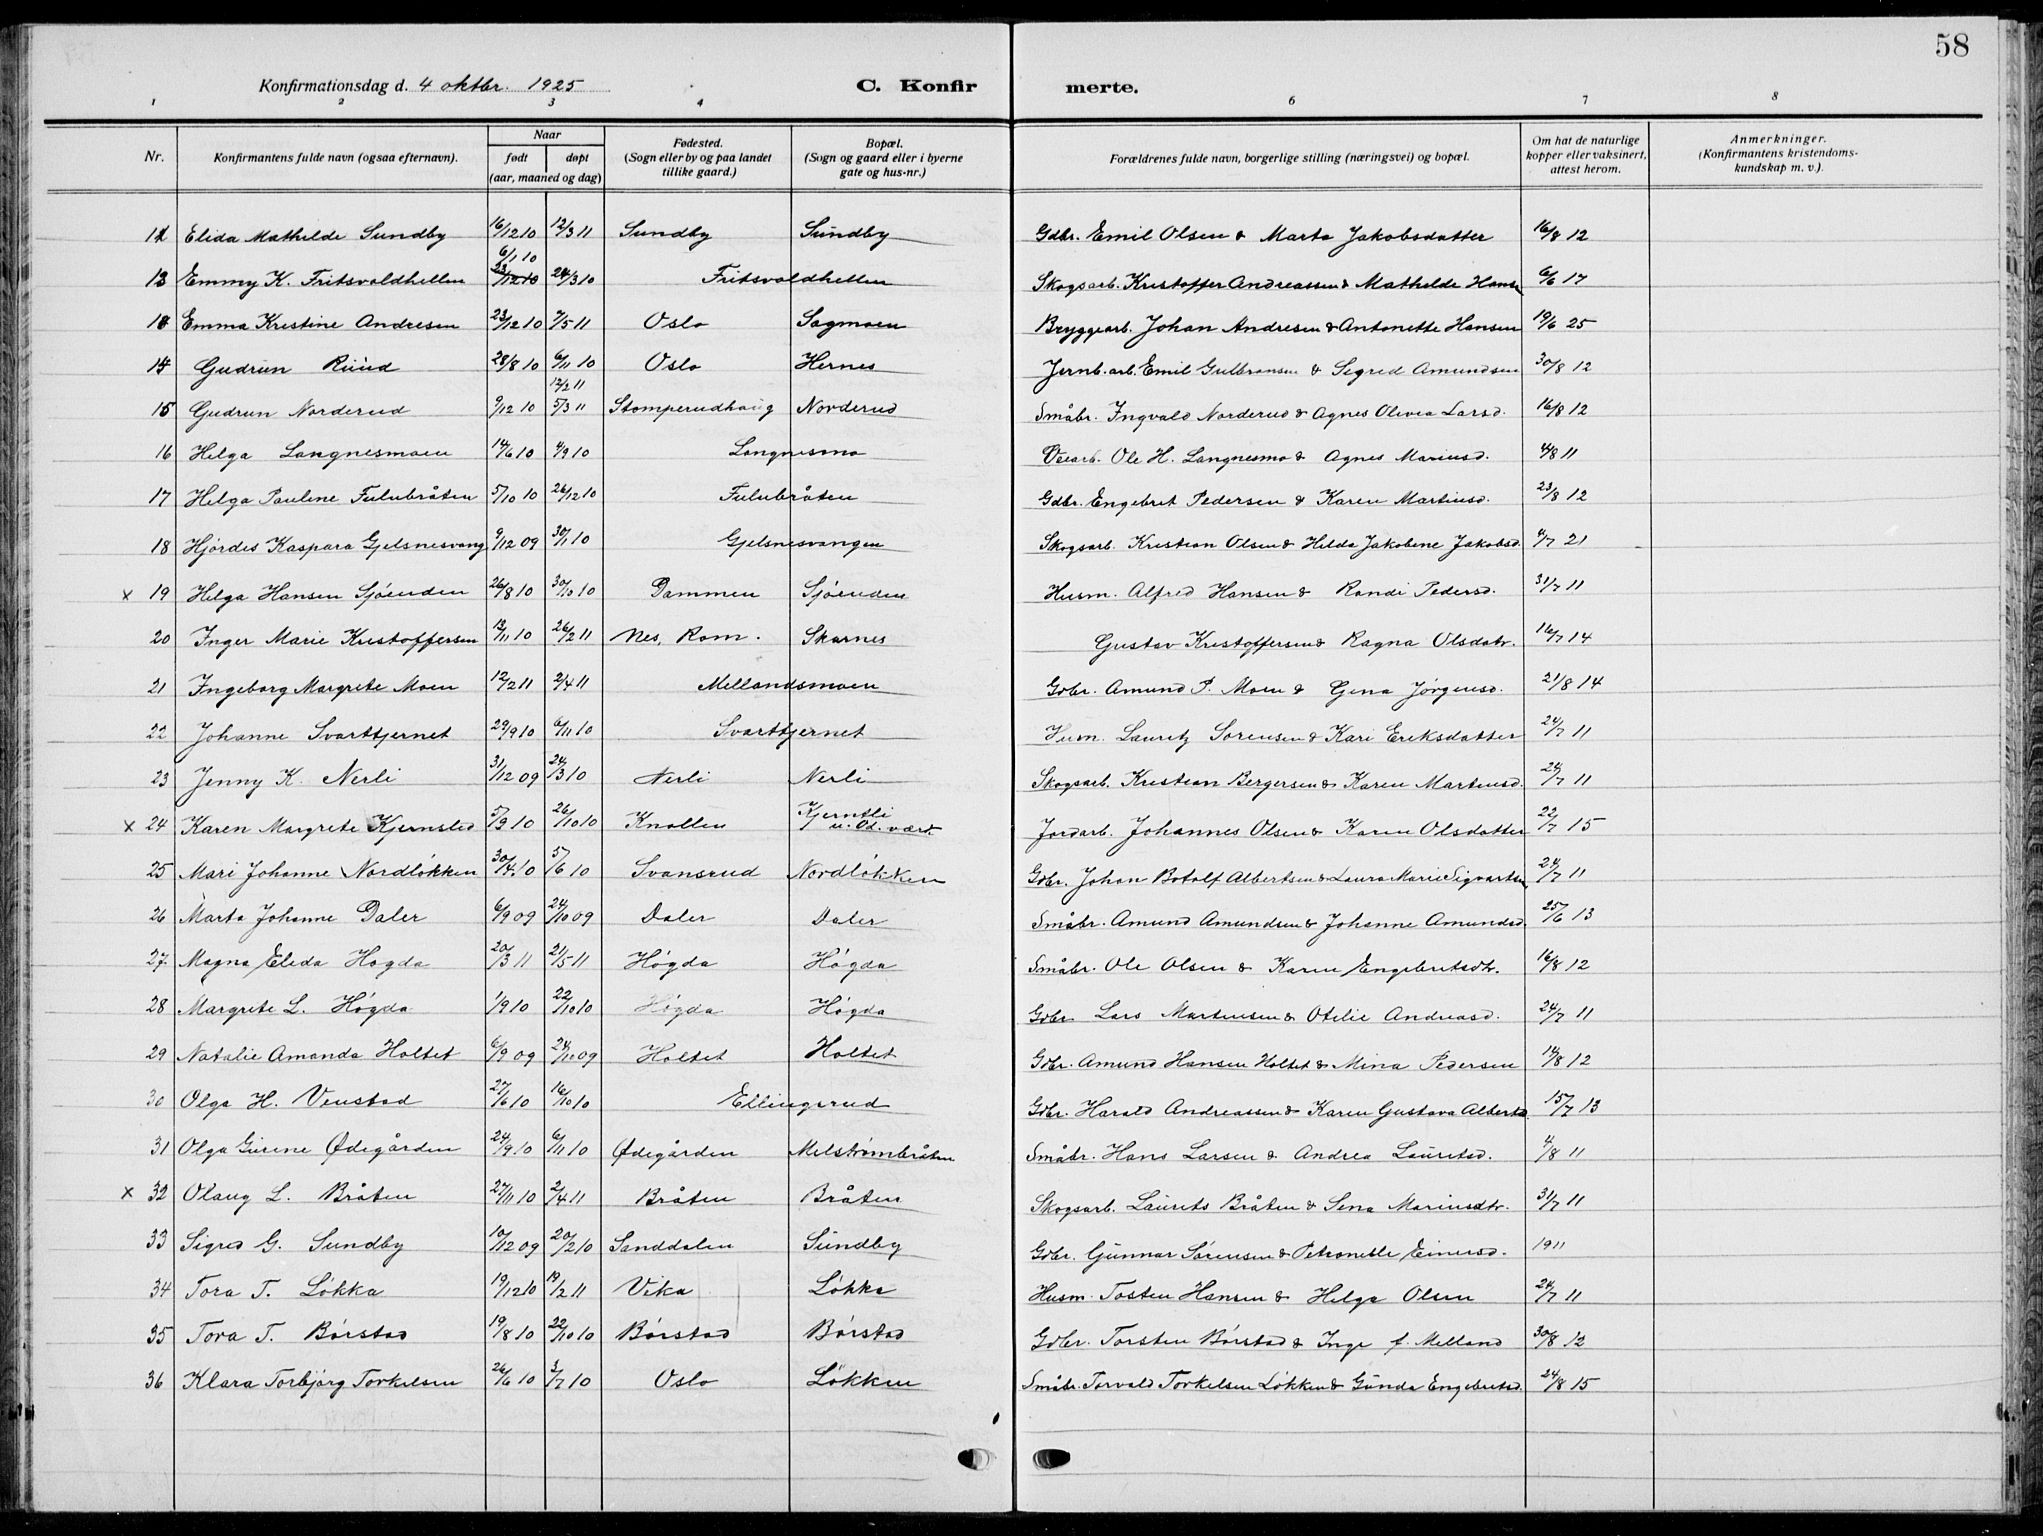 58
Konfirmationsdag d. 4 oktbr. 1925 C. Konfir merte.
1 2 3 4 6 7 8
Nr. Konfirmantens fulde navn (ogsaa efternavn). Naar født døpt (aar, maaned og dag) Fødested. (Sogn eller by og paa landet tillike gaard.) Bopæl. (Sogn og gaard eller i byerne gate og hus-nr.) Forældrenes fulde navn, borgerlige stilling (næringsvei) og bopæl. Om hat de naturlige kopper eller vaksinert, attest herom. Anmerkninger. (Konfirmantens kristendoms-kundskap m. v.).
Elida Mathilde Sundby 16/12 10 12/3 11 Sundby Sundby Gdbr. Emil Olsen & Marta Jakobsdatter 16/8 12
6/1 10
13 Emmy K. Fritsvoldhellen 23/12 10 24/3 10 Fritsvoldhellen Skogsarb. Kristoffer Andreassen & Mathilde Hansen 6/6 17
Emma Kristine Andresen 23/12 10 7/5 11 Oslo Sagmoen Bryggearb. Johan Andresen & Antonette Hansen 19/6 25
14 Gudrun Ruud 28/8 10 6/11 10 Oslo Hernes Jernb.arb. Emil Gulbransen & Sigred Amundsen 30/8 12
12/2 11
15 Gudrun Norderud 9/12 10 5/3 11 Stomperudhaug Norderud Småbr. Ingvald Norderud & Agnes Olivea Larsd. 16/8 12
16 Helga Langnesmoen 14/6 10 4/9 10 Langnesmo Veiarb. Ole H. Langnesmo & Agnes Mariusd. 4/8 11
17 Helga Pauline Fulubråten 5/10 10 26/12 10 Fulubråten Gdbr. Engebret Pedersen & Karen Martinsd. 23/8 12
18 Hjørdes Kaspara Gjelsnesvang 9/12 09 30/1 10 Gjelsnesvangen Skogsarb. Kristian Olsen & Hilda Jakobine Jakobsd. 4/7 21
x 19 Helga Hansen Sjøenden 26/8 10 30/10 10 Dammen Sjøenden Husm. Alfred Hansen & Randi Pedersd. 31/7 11
20 Inger Marie Kristoffersen 13/11 10 26/2 11 Nes, Rom. Skarnes Gustav Kristoffersen & Ragna Olsdatr. 16/7 14
21 Ingeborg Margrete Moen 12/2 11 2/4 11 Mellandsmoen Gdbr. Amund P. Moen & Gina Jørgensd. 21/8 14
22 Johanne Svarttjernet 29/9 10 6/11 10 Svarttjernet Husm. Lauritz Sørensen & Kari Eriksdatter 24/7 11
23 Jenny K. Nerli 31/12 09 24/3 10 Nerli Nerli Skogsarb. Kristian Bergersen & Karen Martinsd. 24/7 11
x 24 Karen Margrete Kjernsted 5/9 10 26/10 10 Knollen Kjerntli u. Od. verk Jordarb. Johannes Olsen & Karen Olsdatter 22/7 15
25 Mari Johanne Nordløkken 30/4 10 5/6 10 Svansrud Nordløkken Gdbr. Johan Botolf Albertsen & Laura Marie Sigvartsen 24/7 11
26 Marta Johanne Daler 6/9 09 24/10 09 Daler Daler Småbr. Amund Amundsen & Johanne Amundsd. 25/6 13
27. Magna Elida Høgda 20/3 11 21/5 11 Høgda Høgda Småbr. Ole Olsen & Karen Engebretsdtr. 16/8 12
28 Margrete L. Høgda 1/9 10 22/10 10 Høgda Høgda Gdbr Lars Martinsen & Otelie Andreasd. 24/7 11
29 Natalie Amanda Holtet 6/9 09 24/10 09 Holtet Holtet Gdbr. Amund Hansen Holtet & Mina Pedersen 14/8 12
30 Olga H. Venstad 27/6 10 16/10 10 Ellingsrud Gdbr. Harald Andreassen & Karen Gustava Alberts 15/7 13
31 Olga Gurine Ødegården 24/9 10 6/11 10 Ødegården Melstrømbråten Småbr. Hans Larsen & Andrea Lauritsd. 4/8 11
x 32 Olaug L. Bråten 27/11 10 2/4 11 Bråten Bråten Skogsarb. Laurits Bråten & Sena Mariusdtr. 31/7 11
33 Sigred G. Sundby 10/12 09 20/2 10 Sanddalen Sundby Gdbr. Gunnar Sørensen & Petronelle Einersd. 1911
34 Tora T. Løkka 19/12 10 19/2 11 Vika Løkka Husm. Tosten Hansen & Helga Olsen 24/7 11
35 Tora T. Børstad 19/8 10 22/10 10 Børstad Børstad Gdbr. Torsten Børstad & Inga f. Melland 30/8 12
36 Klara Torbjørg Torkelsen 26/6 10 3/7 10 Oslo Løkken Småbr. Torvald Torkelsen Løkken & Gunda Engebretsd. 24/8 15